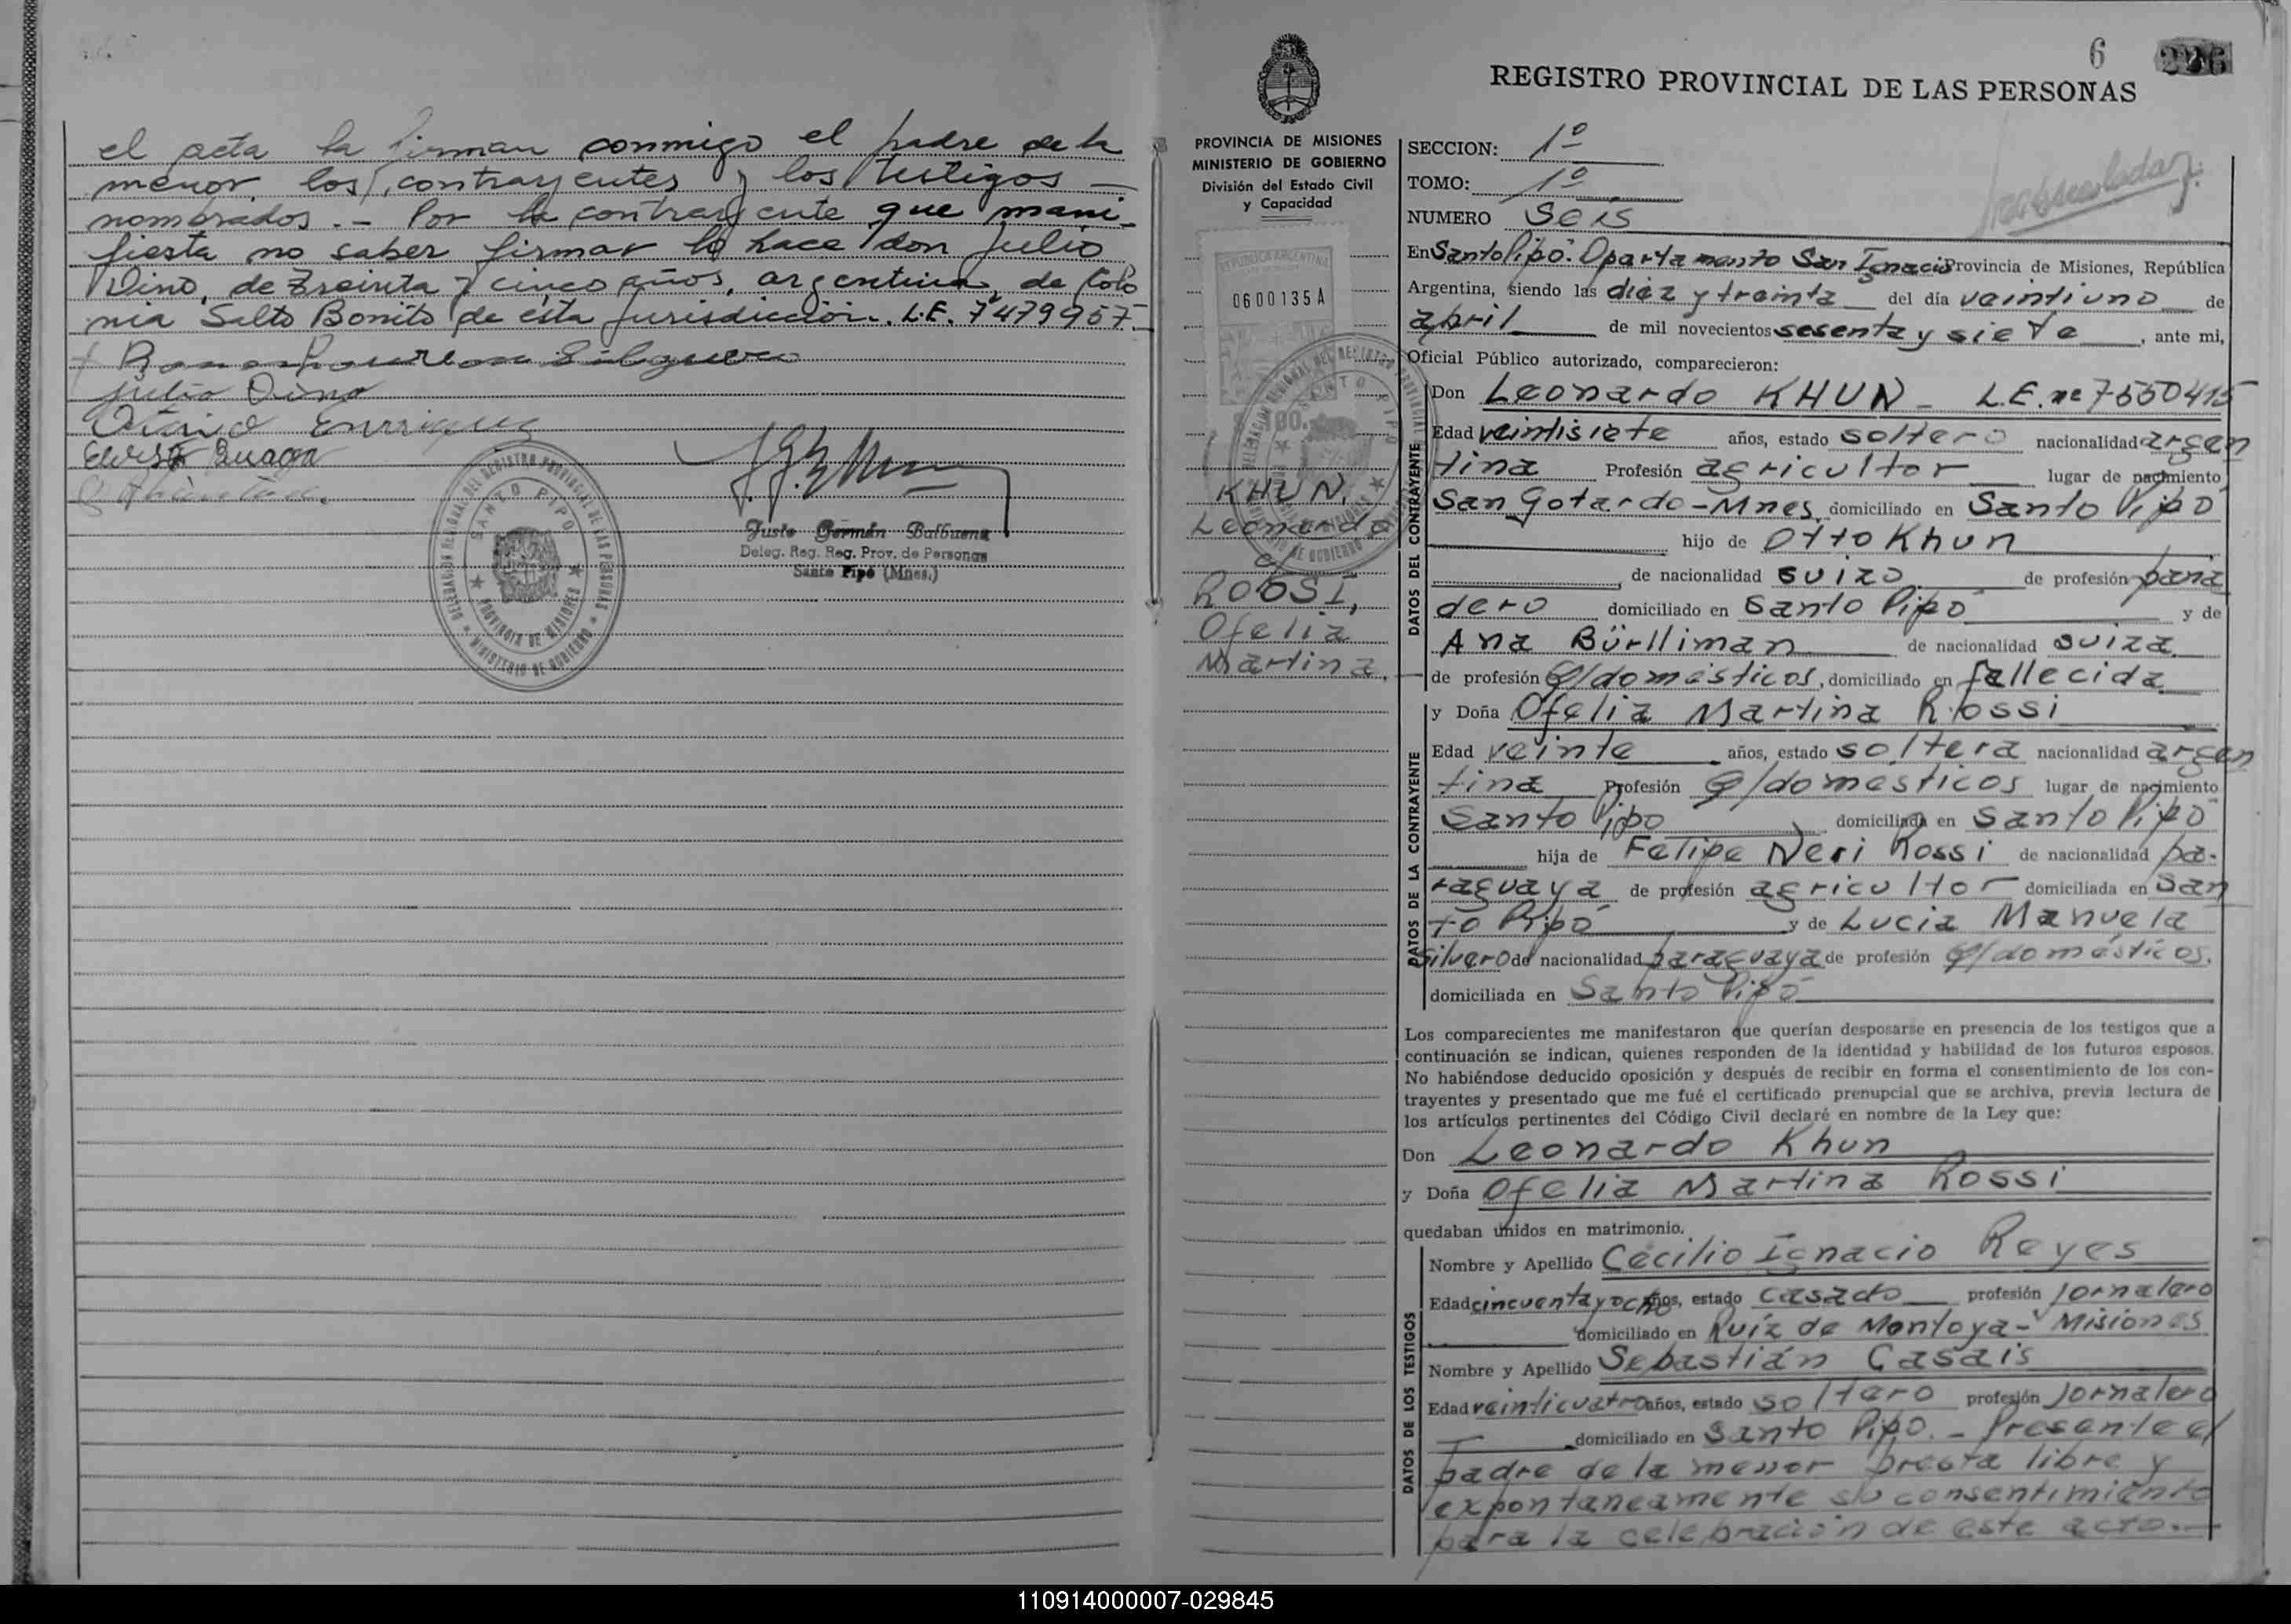 el acta la firman conmigo el padre de la
menor, los contrayentes y los testigos —
nombrados. – Por la contrayente que mani-
fiesta no saber firmar lo hace don Julio
Dino, de treinta y cinco años, argentino, de Colo
nia Salto Bonito de ésta jurisdicción. L.E. 7479957.-
Julio Dino
Justo Germán Balbuena
Deleg. Reg. Reg. Prov. de Personas
Santo Pipó (Mnes.)
DELEGACION REGIONAL DEL REGISTRO PROVINCIAL DE LAS PERSONAS
SANTO PIPO
PROVINCIA DE MISIONES
MINISTERIO DE GOBIERNO
6 226
REGISTRO PROVINCIAL DE LAS PERSONAS
PROVINCIA DE MISIONES
MINISTERIO DE GOBIERNO
División del Estado Civil
y Capacidad
REPUBLICA ARGENTINA
0600135A
KHUN,
Leonardo
c/
ROSSI,
Ofelia
Martina.
SECCION: 1º
TOMO: 1º
NUMERO SEIS
En Santo Pipó. Dpartamento San Ignacio Provincia de Misiones, República
Argentina, siendo las diéz y treinta del día veintiuno de
abril de mil novecientos sesenta y siete, ante mi,
Oficial Público autorizado, comparecieron:
DATOS DEL CONTRAYENTE
Don Leonardo KHUN – L.E. nº 7550415
Edad veintisiete años, estado soltero nacionalidad argen
tina Profesión agricultor lugar de nacimiento
San Gotardo-Mnes, domiciliado en Santo Pipó
hijo de Otto Khun
, de nacionalidad suizo de profesión pana
dero domiciliado en Santo Pipó y de
Ana Bürlliman de nacionalidad suiza
de profesión q/domésticos, domiciliado en fallecida
DATOS DE LA CONTRAYENTE
y Doña Ofelia Martina Rossi
Edad veinte años, estado soltera nacionalidad argen
tina Profesión q/domésticos lugar de nacimiento
Santo Pipó domiciliada en Santo Pipó
hija de Felipe Neri Rossi de nacionalidad pa-
raguaya de profesión agricultor domiciliada en San
to Pipó y de Lucia Manuela
Silvero de nacionalidad paraguaya de profesión q/domésticos.
domiciliada en Santo Pipó
Los comparecientes me manifestaron que querían desposarse en presencia de los testigos que a
continuación se indican, quienes responden de la identidad y habilidad de los futuros esposos.
No habiéndose deducido oposición y después de recibir en forma el consentimiento de los con-
trayentes y presentado que me fué el certificado prenupcial que se archiva, previa lectura de
los artículos pertinentes del Código Civil declaré en nombre de la Ley que:
Don Leonardo Khun
y Doña Ofelia Martina Rossi
quedaban unidos en matrimonio.
DATOS DE LOS TESTIGOS
Nombre y Apellido Cecilio Ignacio Reyes
Edad cincuenta y ocho años, estado casado profesión jornalero
domiciliado en Ruíz de Montoya- Misiones
Nombre y Apellido Sebastián Casais
Edad veinticuatro años, estado soltero profesión jornalero
domiciliado en Santo Pipó. – Presente el
padre de la menor presta libre y
expontaneamente su consentimiento
para la celebración de este acto.—
110914000007-029845